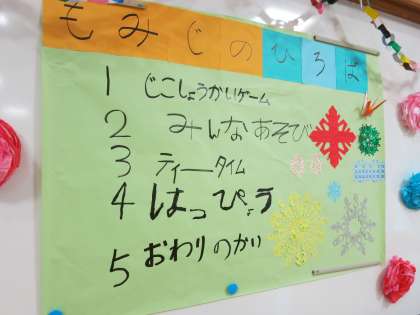 もみじのひろば
1 じこしょうかいゲーム
2 みんなあそび
3 ティータイム
4 はっぴょう
5 おわりのかい